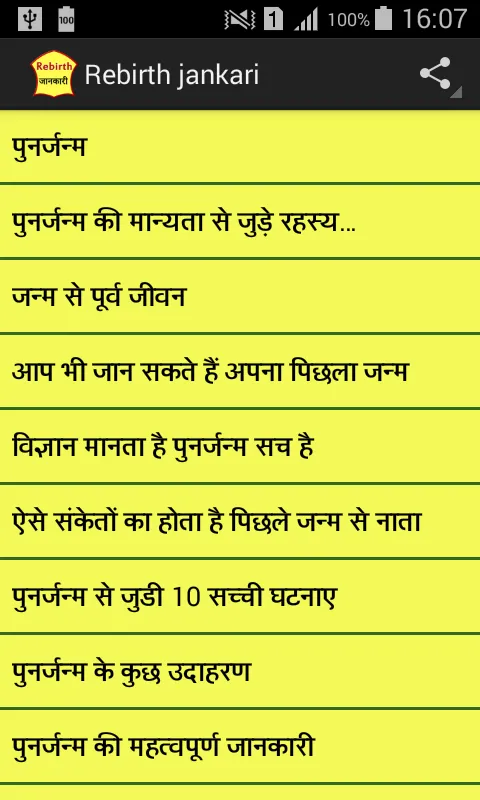 100
1
100%
16:07
Rebirth
जानकारी
Rebirth jankari
पुनर्जन्म
पुनर्जन्म की मान्यता से जुड़े रहस्य...
जन्म से पूर्व जीवन
आप भी जान सकते हैं अपना पिछला जन्म
विज्ञान मानता है पुनर्जन्म सच है
ऐसे संकेतों का होता है पिछले जन्म से नाता
पुनर्जन्म से जुडी 10 सच्ची घटनाए
पुनर्जन्म के कुछ उदाहरण
पुनर्जन्म की महत्वपूर्ण जानकारी